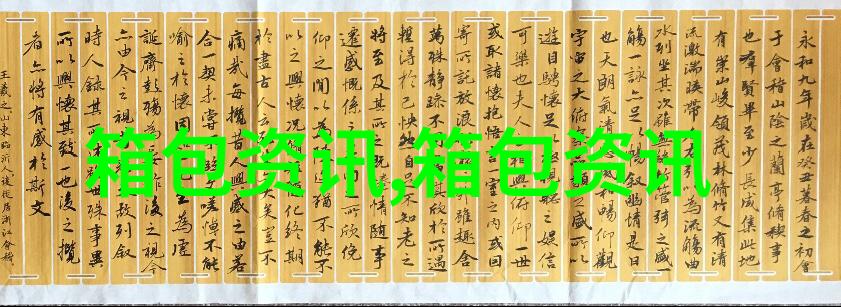 永和九年歲在癸丑暮春之初會
于會稽山陰之蘭亭脩稧事
也群賢畢至少長咸集此地
有崇山峻領茂林脩竹又有清
流激湍暎帶左右引以為流觴曲
水列坐其次雖無絲竹管弦之盛一
觴一詠亦足以暢敘幽情是日
也天朗氣清和暢仰觀
宇宙之大俯類之盛所以
遊目騁懷足極視聽之娛信
可樂也夫人與俯仰一世
或取諸懷抱悟言一室之內或因
寄所託放浪外雖趣舍
萬殊靜躁不其欣於所遇
暫得於己快然自足不知老之
將至及其所之既惓情隨事
遷感慨係之之所欣俛
仰之間以為猶不能不
以之興懷況脩化終期
於盡古人云矣豈不
痛哉每攬昔人興感之由若
合一契未嘗嗟悼不能
喻之於懷固生為虛
誕齊彭殤為妄作後之視今
亦由今之視故列敘
時人錄其所世殊事異
所以興懷其致一也後之攬
者亦將有感於斯文
王羲之山東臨沂人後徙居浙江會稽
箱包资讯,箱包资讯